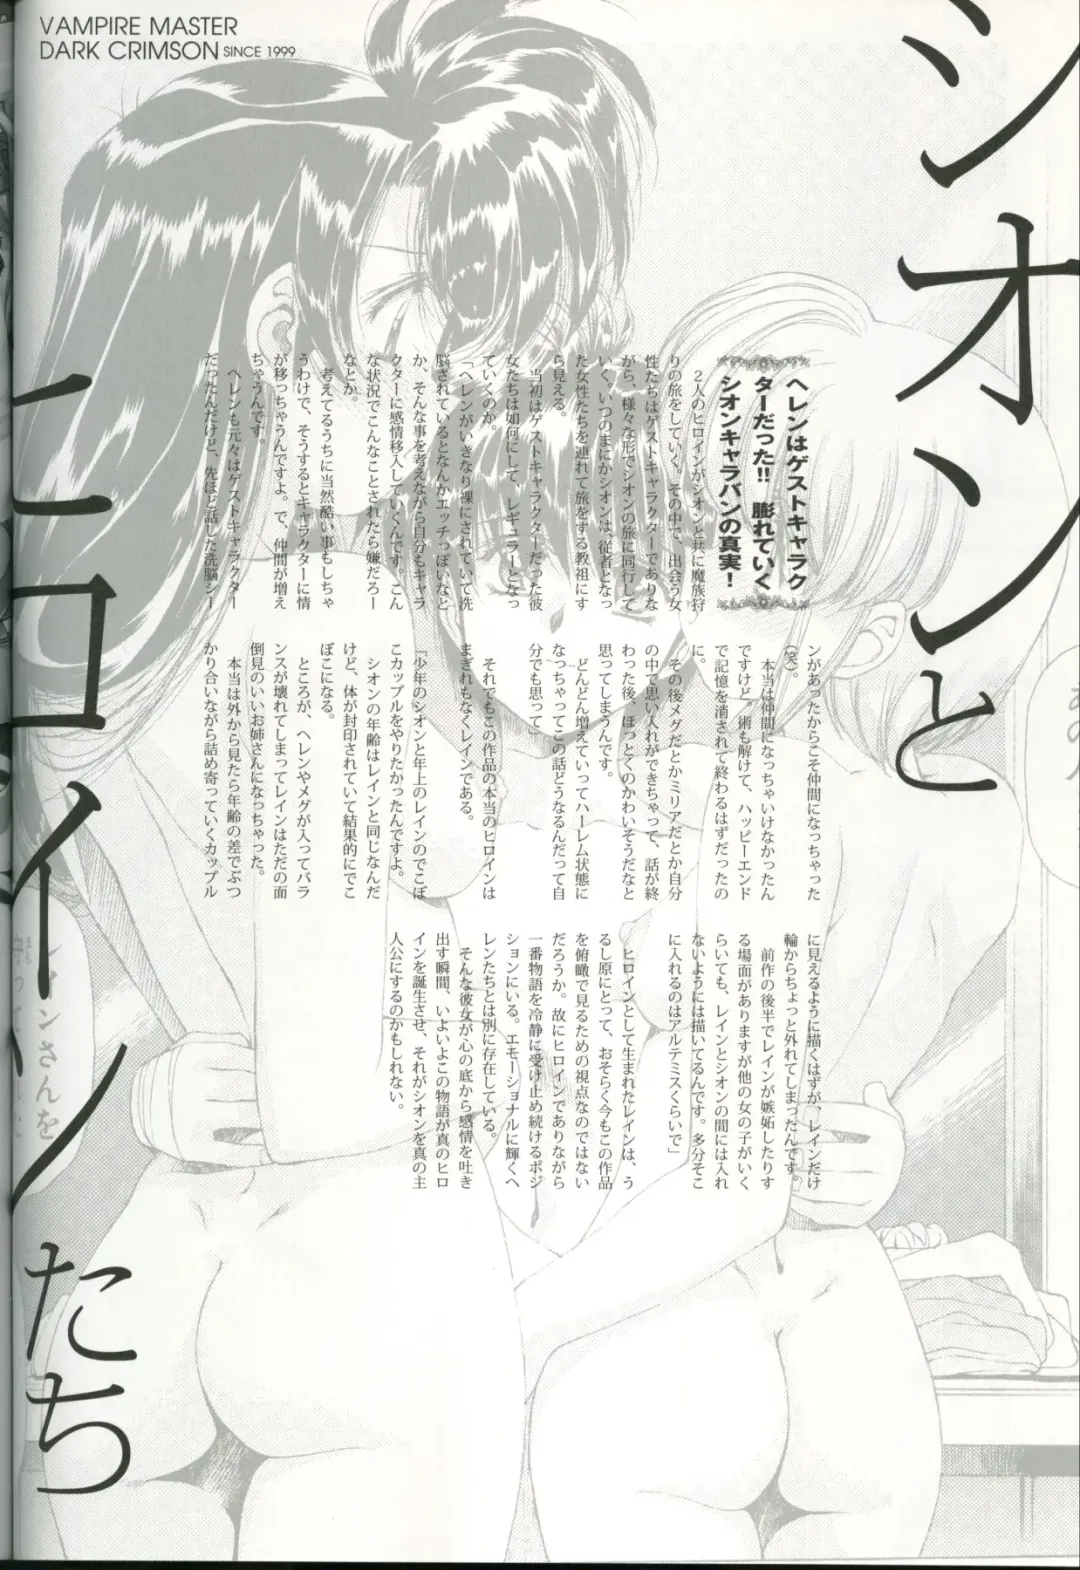 VAMPIRE MASTER
DARK CRIMSON SINCE 1999
シオンと
ヒロインたち
ヘレンはゲストキャラク
ターだった!! 膨れていく
シオンキャラバンの真実！
２人のヒロインがシオンと共に魔族狩
りの旅をしていく。その中で、出会う女
性たちはゲストキャラクターでありな
がら、様々な形でシオンの旅に同行して
いく。いつのまにかシオンは、従者となっ
た女性たちを連れて旅をする教祖にす
ら見える。
当初はゲストキャラクターだった彼
女たちは如何にして、レギュラーとなっ
ていくのか。
「ヘレンがいきなり裸にされていて洗
脳されているとなんかエッチっぽいなと
か、そんな事を考えながら自分もキャラ
クターに感情移入していくんです。こん
な状況でこんなことされたら嫌だろー
なとか。
考えてるうちに当然酷い事もしちゃ
うわけで、そうするとキャラクターに情
が移っちゃうんですよ。で、仲間が増え
ちゃうんです。
ヘレンも元々はゲストキャラクター
だったんだけど、先ほど話した洗脳シー
ンがあったからこそ仲間になっちゃった
（笑）。
本当は仲間になっちゃいけなかったん
ですけど。術も解けて、ハッピーエンド
で記憶を消されて終わるはずだったの
に。
その後メグだとかミリアだとか自分
の中で思い入れができちゃって、話が終
わった後、ほっとくのかわいそうだなと
思ってしまうんです。
どんどん増えていってハーレム状態に
なっちゃってこの話どうなるんだって自
分でも思って」
それでもこの作品の本当のヒロインは
まぎれもなくレインである。
「少年のシオンと年上のレインのでこぼ
こカップルをやりたかったんですよ。
シオンの年齢はレインと同じなんだ
けど、体が封印されていて結果的にでこ
ぼこになる。
ところが、ヘレンやメグが入ってバラ
ンスが壊れてしまってレインはただの面
倒見のいいお姉さんになっちゃった。
本当は外から見たら年齢の差でぶつ
かり合いながら詰め寄っていくカップル
に見えるように描くはずが、レインだけ
輪からちょっと外れてしまったんです。
前作の後半でレインが嫉妬したりす
る場面がありますが他の女の子がいく
らいても、レインとシオンの間には入れ
ないようには描いてるんです。多分そこ
に入れるのはアルテミスくらいで」
ヒロインとして生まれたレインは、う
るし原にとって、おそらく今もこの作品
を俯瞰で見るための視点なのではない
だろうか。故にヒロインでありながら
一番物語を冷静に受け止め続けるポジ
ションにいる。エモーショナルに輝くヘ
レンたちとは別に存在している。
そんな彼女が心の底から感情を吐き
出す瞬間、いよいよこの物語が真のヒロ
インを誕生させ、それがシオンを真の主
人公にするのかもしれない。